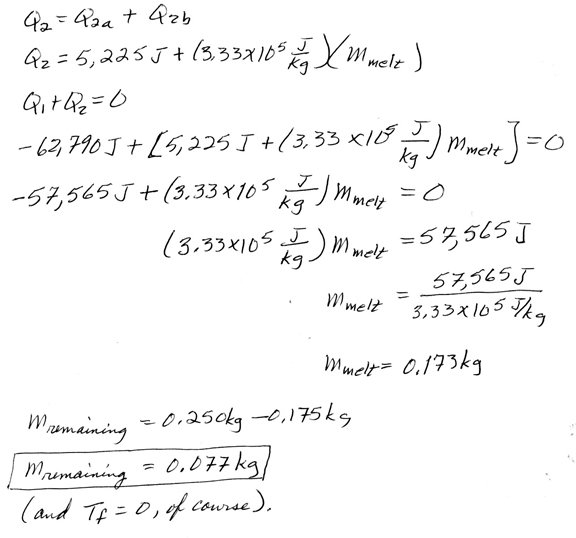 Q₂ = Q₂ₐ + Q₂b
Q₂ = 5,225 J + (3.33x10⁵ J/kg)(m melt)
Q₁ + Q₂ = 0
-62,790 J + [5,225 J + (3.33 x10⁵ J/kg) m melt] = 0
-57,565 J + (3.33x10⁵ J/kg) m melt = 0
(3.33x10⁵ J/kg) m melt = 57,565 J
m melt = 57,565 J / 3.33x10⁵ J/kg
m melt = 0.173 kg
m remaining = 0.250kg - 0.175kg
m remaining = 0.077 kg
(and T_f = 0, of course).